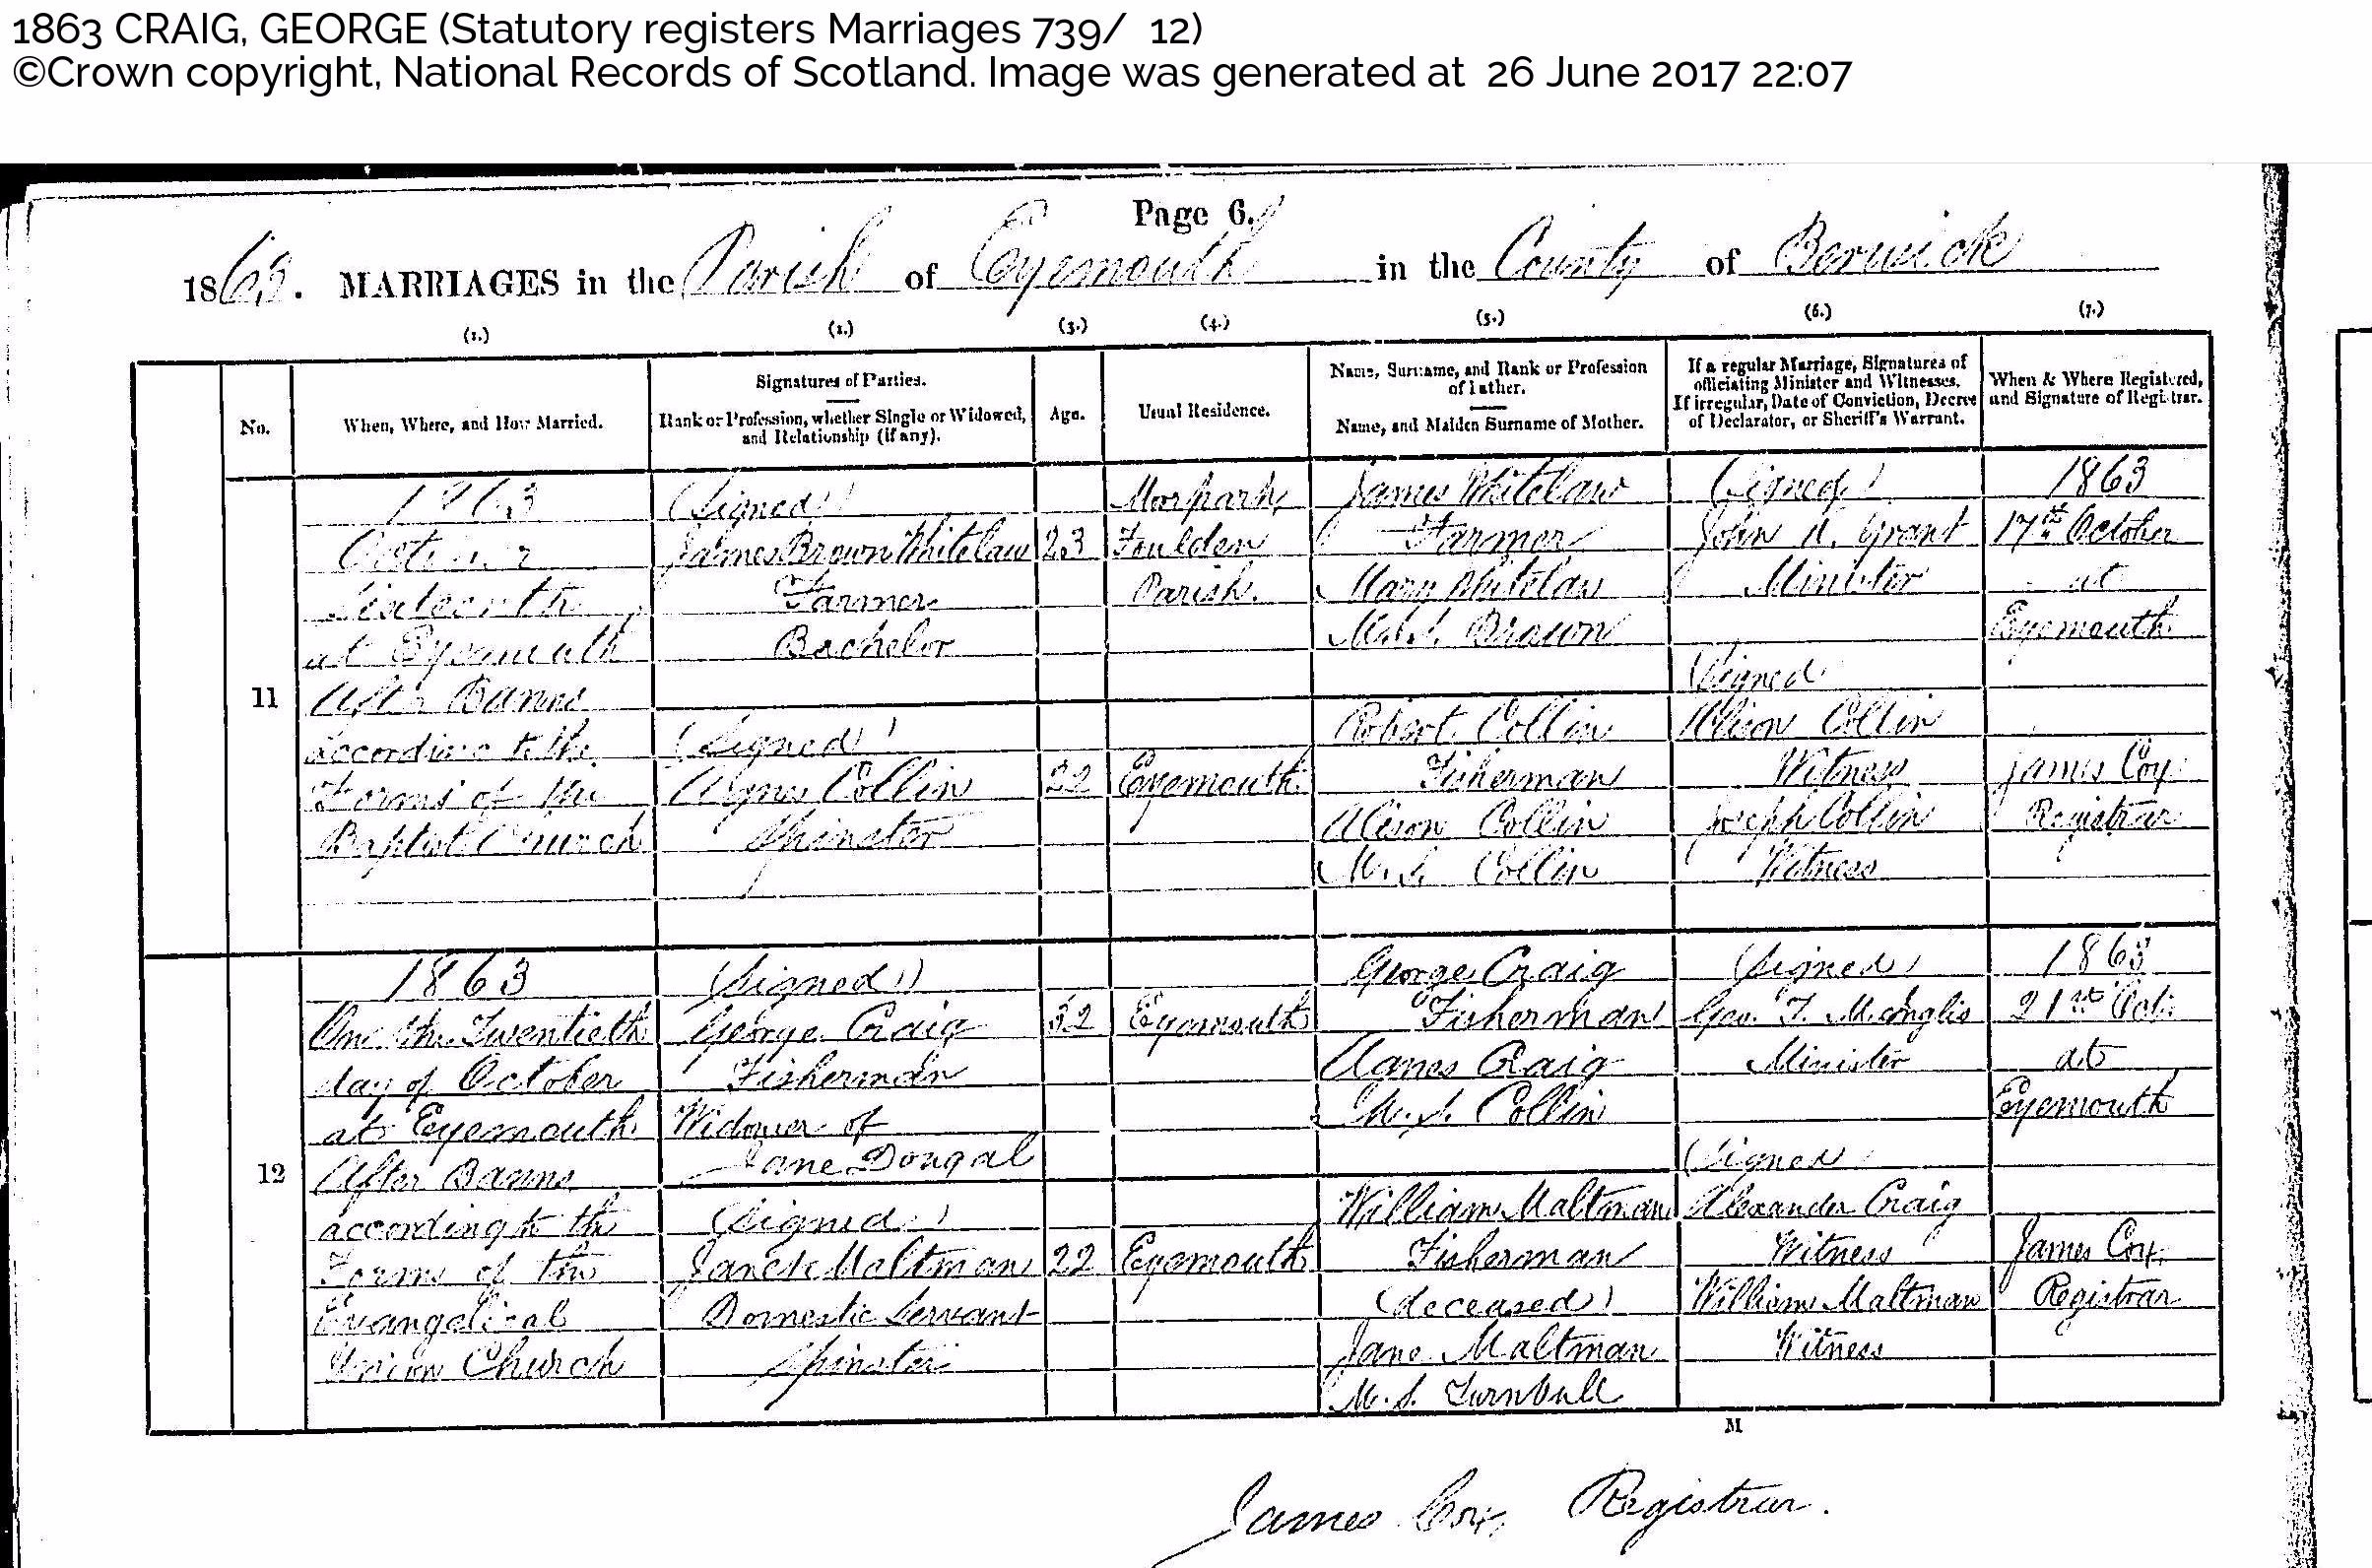 1863 CRAIG, GEORGE (Statutory registers Marriages 739/ 12)
©Crown copyright, National Records of Scotland. Image was generated at 26 June 2017 22:07
Page 6.
1863. MARRIAGES in the Parish of Eyemouth in the County of Berwick
(1.) (2.) (3.) (4.) (5.) (6.) (7.)
No.
When, Where, and How Married.
Signatures of Parties.
Rank or Profession, whether Single or Widowed,
and Relationship (if any).
Age.
Usual Residence.
Name, Surname, and Rank or Profession
of Father.
Name, and Maiden Surname of Mother.
If a regular Marriage, Signatures of
officiating Minister and Witnesses.
If irregular, Date of Conviction, Decree
of Declarator, or Sheriff's Warrant.
When & Where Registered,
and Signature of Registrar.
11
1863
October
Sixteenth
at Eyemouth
After Banns
according to the
Forms of the
Baptist Church
(Signed)
James Brown Whitelaw
Farmer
Bachelor
(Signed)
Agnes Collin
Spinster
23
22
Foulden
Parish.
Eyemouth
James Whitelaw
Farmer
Mary Whitelaw
M.S. Brown
Robert Collin
Fisherman
Alison Collin
M.S. Collin
(Signed)
John N. Grant
Minister
(Signed
Alison Collin
Witness
Joseph Collin
Witness
1863
17th October
at
Eyemouth
James Coy
Registrar
12
1863
On the Twentieth
day of October
at Eyemouth.
After Banns
according to the
Forms of the
Evangelical
Union Church
(Signed)
George Craig
Fisherman
Widower of
Jane Dougal
(Signed)
Janet Maltman
Domestic Servant
Spinster
32
22
Eyemouth
Eyemouth
George Craig
Fisherman
Agnes Craig
M.S. Collin
William Maltman
Fisherman
(deceased)
Jane Maltman
M.S. Turnbull
(Signed)
Geo. T.
Minister
(Signed
Alexander Craig
Witness
William Maltman
Witness
1863
21st Oct.
at
Eyemouth
James Coy,
Registrar
M
James Coy, Registrar.